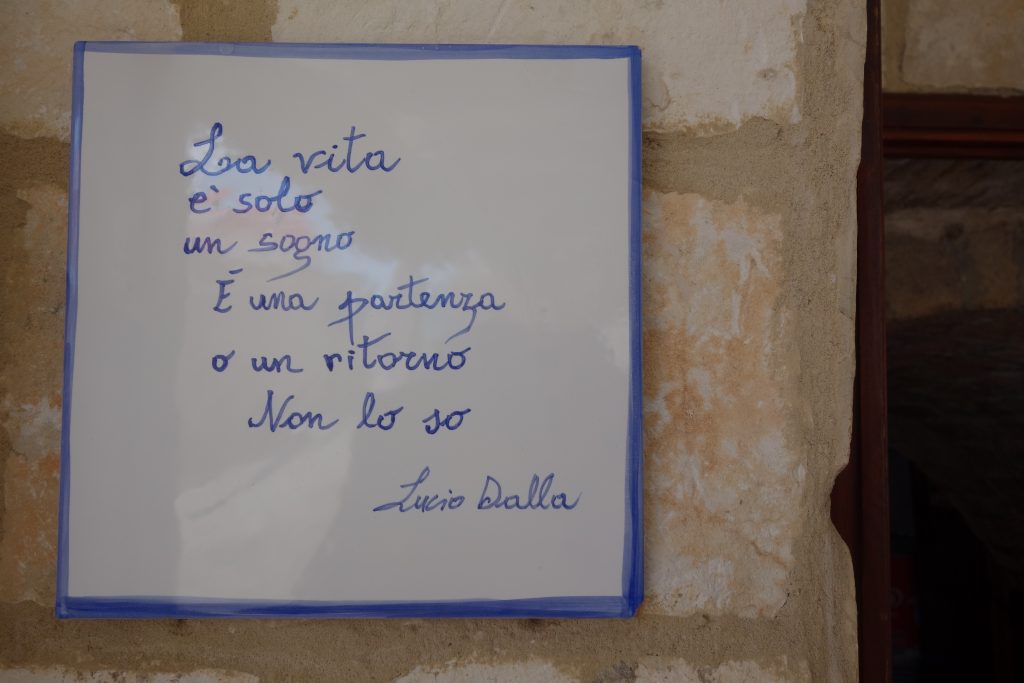 La vita
è solo
un sogno
É una partenza
o un ritorno
Non lo so
Lucio Dalla